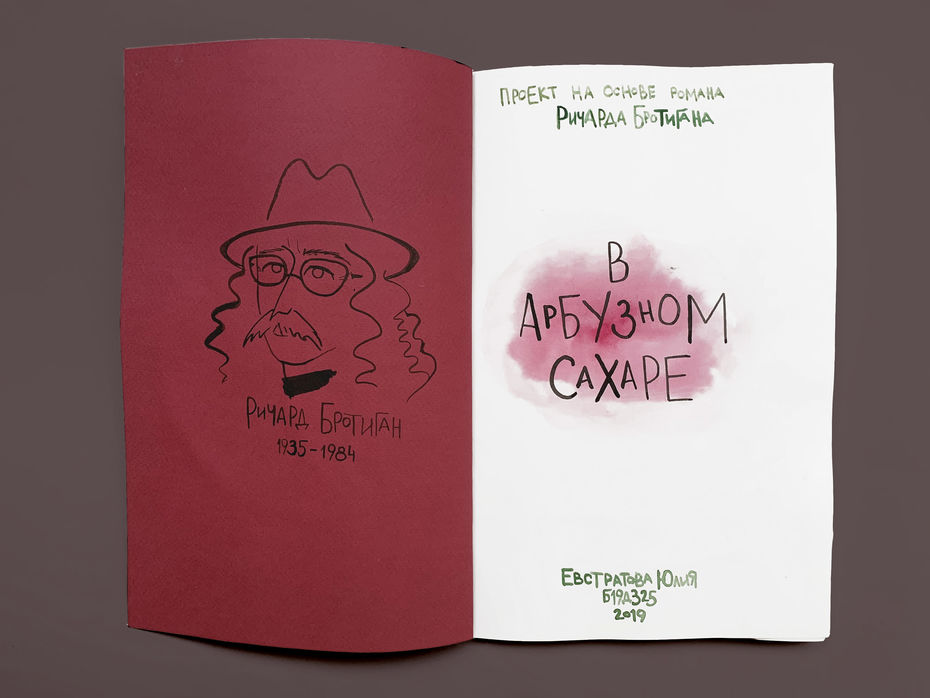 Ричард Бротиган
1935-1984
Проект на основе романа
Ричарда Бротигана
В
Арбузном
Сахаре
Евстратова Юлия
Б19Д325
2019